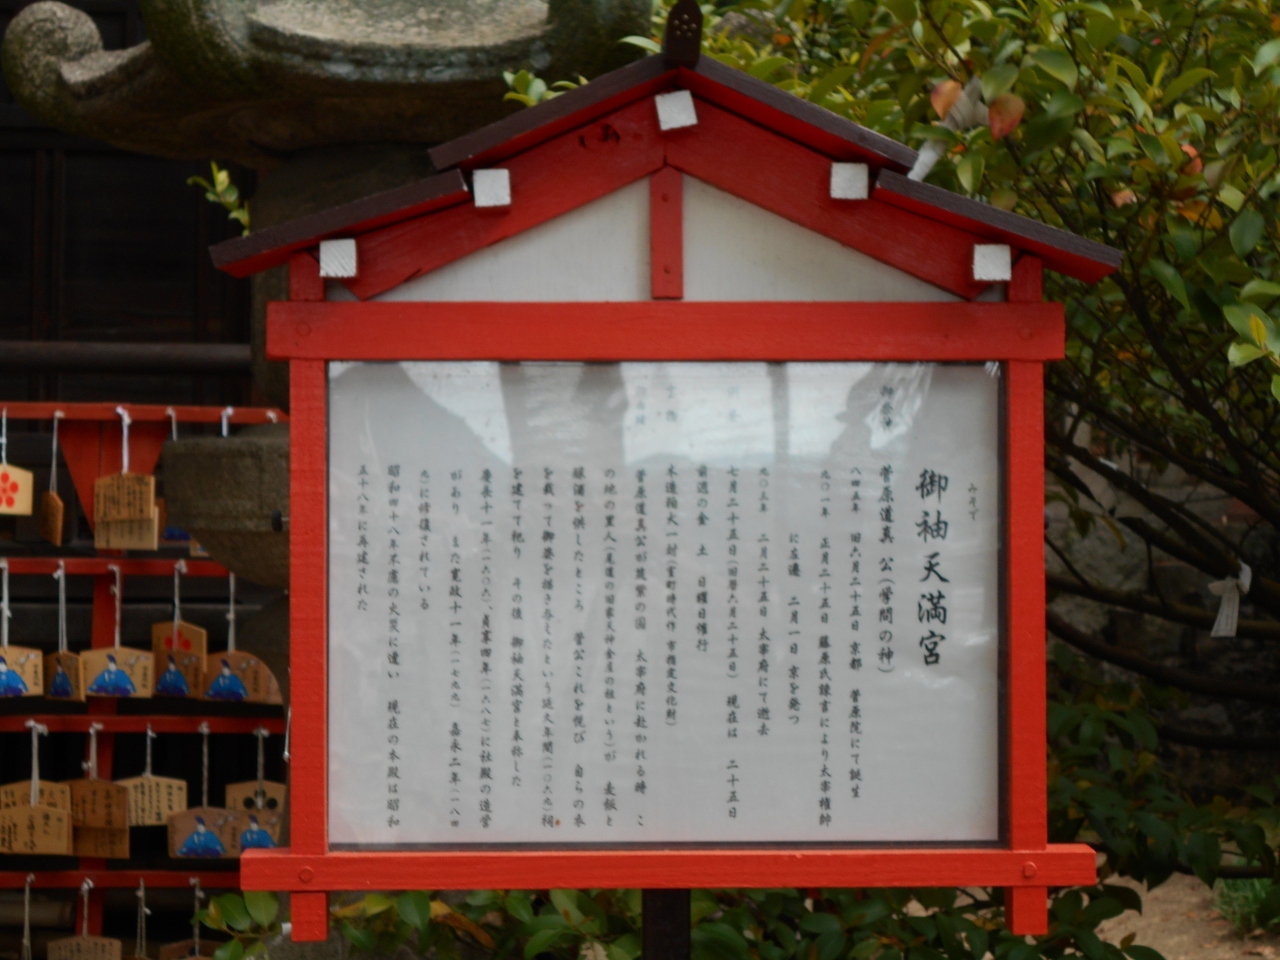 みそで
御袖天満宮
御祭神
菅原道真 公(学問の神)
八四五年 旧六月二十五日 京都 菅原院にて誕生
九〇一年 正月二十五日 藤原氏讒言により太宰権帥
に左遷 二月一日 京を発つ
九〇三年 二月二十五日 太宰府にて逝去
七月二十五日(旧暦六月二十五日) 現在は 二十五日
前週の金 土 日曜日催行
木造狛犬一対(室町時代作 市指定文化財)
菅原道真公が筑紫の国 太宰府に赴かれる時 こ
の地の里人(尾道の旧家天神金屋の祖という)が 麦飯と
醸酒を供したところ 菅公これを悦び 自らの衣
を裁って御姿を描き与えたという延久年間(一〇六九)祠
を建てて祀り その後 御袖天満宮と奉称した
慶長十一年(一六〇六)、貞享四年(一六八七)に社殿の造営
があり また寛政十一年(一七九九) 嘉永二年(一八四
九)に修復されている
昭和四十八年不慮の火災に遭い 現在の本殿は昭和
五十八年に再建された